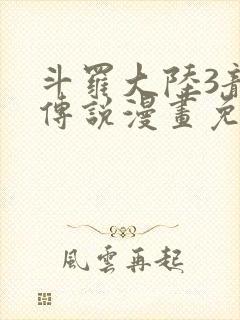 斗羅大陸3
傳說漫畫免
風雲再起